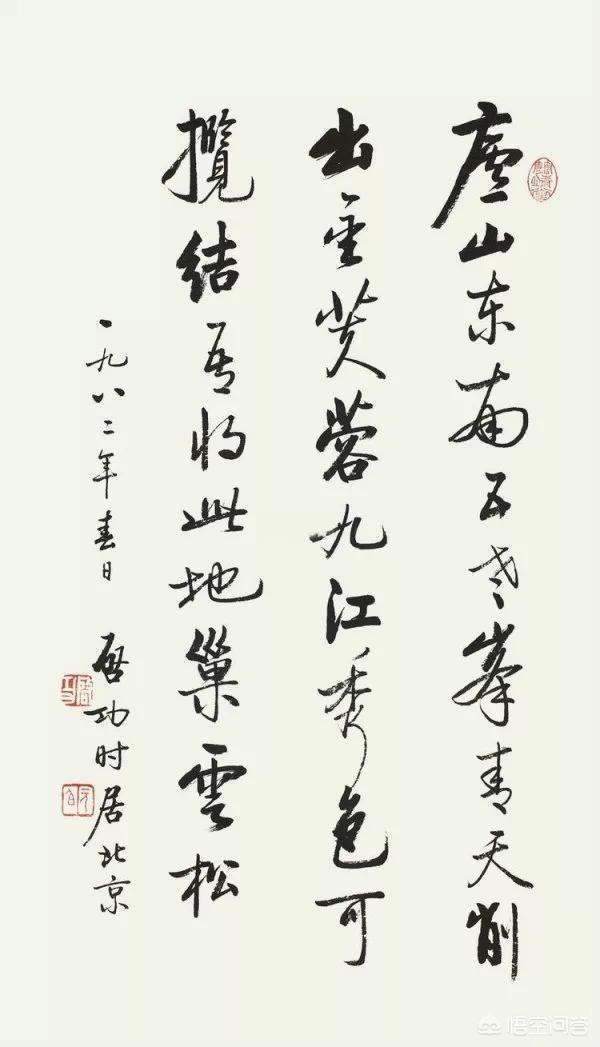 廬山东南五老峯青天削
出金芙蓉九江秀色可
攬结吾将此地巢雲松
一九八二年春日 启功时居北京
悟空问答